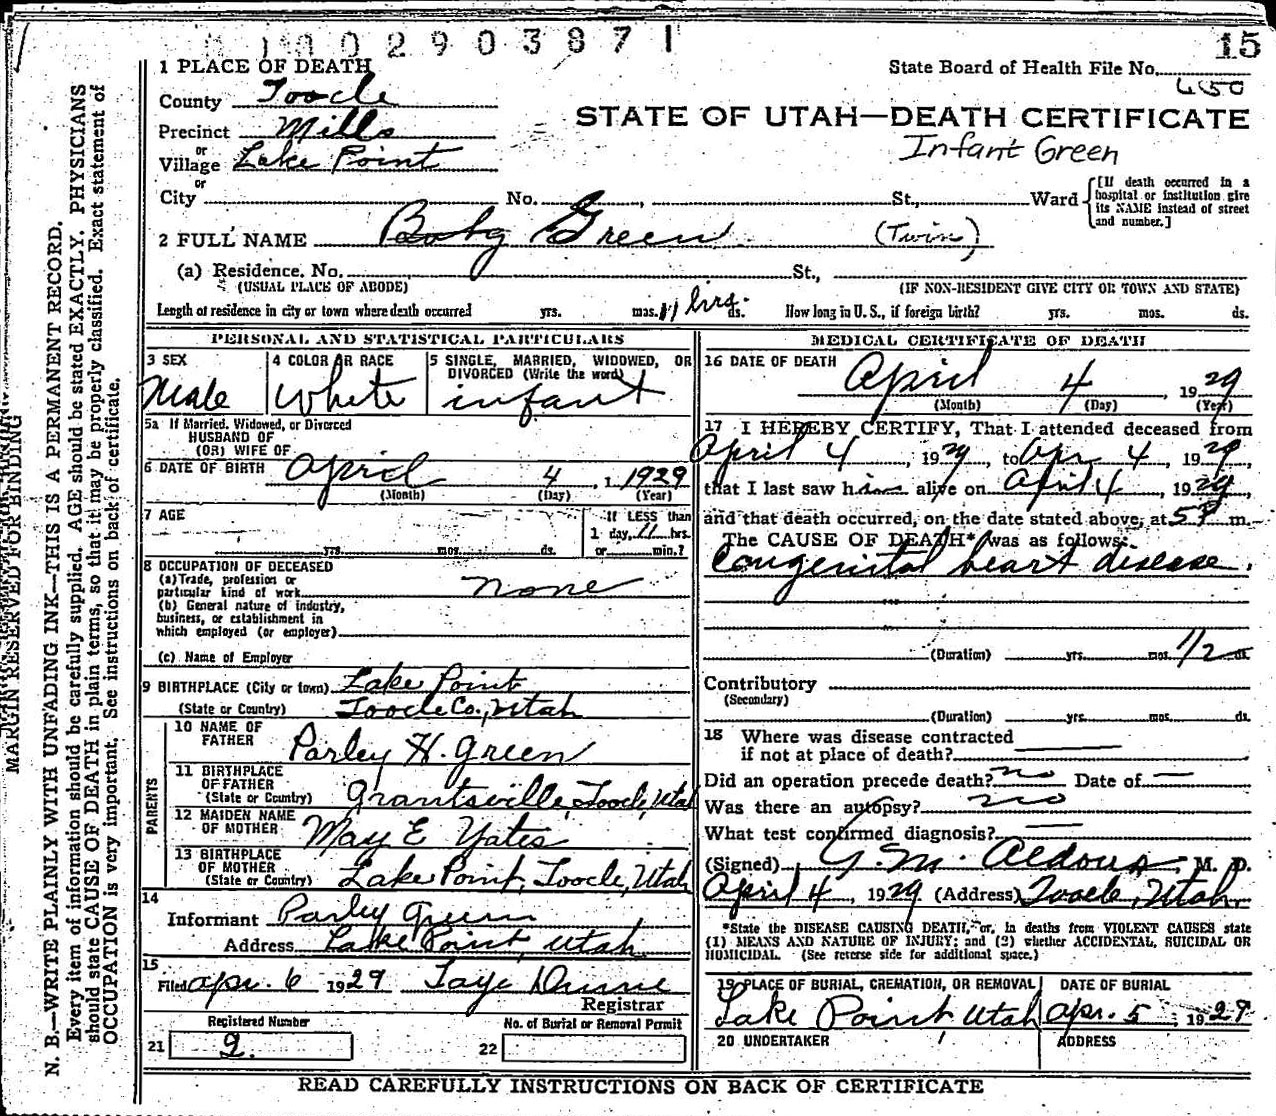 1002903871
15
1 PLACE OF DEATH
State Board of Health File No.
County Tooele
450
STATE OF UTAH—DEATH CERTIFICATE
Precinct Mills
Infant Green
or
Village Lake Point
or
City No. , St., Ward
[If death occurred in a hospital or institution give its NAME instead of street and number.]
2 FULL NAME Baby Green (Twin)
(a) Residence. No. St.,
(USUAL PLACE OF ABODE) (IF NON-RESIDENT GIVE CITY OR TOWN AND STATE)
Length of residence in city or town where death occurred yrs. mos. 11 hrs. ds. How long in U. S., if foreign birth? yrs. mos. ds.
PERSONAL AND STATISTICAL PARTICULARS
3 SEX
Male
4 COLOR OR RACE
White
5 SINGLE, MARRIED, WIDOWED, OR DIVORCED (Write the word)
infant
5a If Married, Widowed, or Divorced
HUSBAND OF
(OR) WIFE OF
6 DATE OF BIRTH April 4 , 1929
(Month) (Day) (Year)
7 AGE
yrs. mos. ds.
If LESS than
1 day, 11 hrs.
or min.?
8 OCCUPATION OF DECEASED
(a) Trade, profession or particular kind of work none
(b) General nature of industry, business, or establishment in which employed (or employer)
(c) Name of Employer
9 BIRTHPLACE (City or town) Lake Point
(State or Country) Tooele Co., Utah
PARENTS
10 NAME OF FATHER Parley H. Green
11 BIRTHPLACE OF FATHER (State or Country) Grantsville, Tooele, Utah
12 MAIDEN NAME OF MOTHER May E Yates
13 BIRTHPLACE OF MOTHER (State or Country) Lake Point, Tooele, Utah
14
Informant Parley Green
Address Lake Point, Utah
15
Filed Apr. 6 1929
Registrar
Registered Number
21 9.
No. of Burial or Removal Permit
22
MEDICAL CERTIFICATE OF DEATH
16 DATE OF DEATH April 4 , 1929
(Month) (Day) (Year)
17 I HEREBY CERTIFY, That I attended deceased from
April 4 , 1929, to Apr 4, 1929,
that I last saw him alive on April 4, 1929,
and that death occurred, on the date stated above, at 5 P m.
The CAUSE OF DEATH* was as follows:
Congenital heart disease.
(Duration) yrs. mos. 1/2 ds.
Contributory
(Secondary)
(Duration) yrs. mos. ds.
18 Where was disease contracted
if not at place of death?
Did an operation precede death? no Date of —
Was there an autopsy? no
What test confirmed diagnosis? —
(Signed) G. M. Aldous, M. D.
April 4, 1929 (Address) Tooele, Utah.
*State the DISEASE CAUSING DEATH, or, in deaths from VIOLENT CAUSES state
(1) MEANS AND NATURE OF INJURY; and (2) whether ACCIDENTAL, SUICIDAL OR
HOMICIDAL. (See reverse side for additional space.)
19 PLACE OF BURIAL, CREMATION, OR REMOVAL
Lake Point, Utah
DATE OF BURIAL
Apr. 5, 1929
20 UNDERTAKER
ADDRESS
READ CAREFULLY INSTRUCTIONS ON BACK OF CERTIFICATE
MARGIN RESERVED FOR BINDING
N. B.—WRITE PLAINLY WITH UNFADING INK—THIS IS A PERMANENT RECORD.
Every item of information should be carefully supplied. AGE should be stated EXACTLY. PHYSICIANS
should state CAUSE OF DEATH in plain terms, so that it may be properly classified. Exact statement of
OCCUPATION is very important. See instructions on back of certificate.